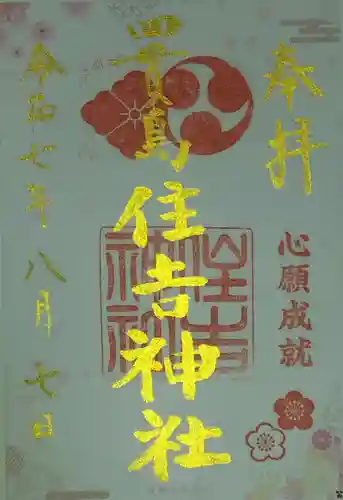 奉拝
心願成就
貴島住吉神社
住吉神社
令和七年八月七日